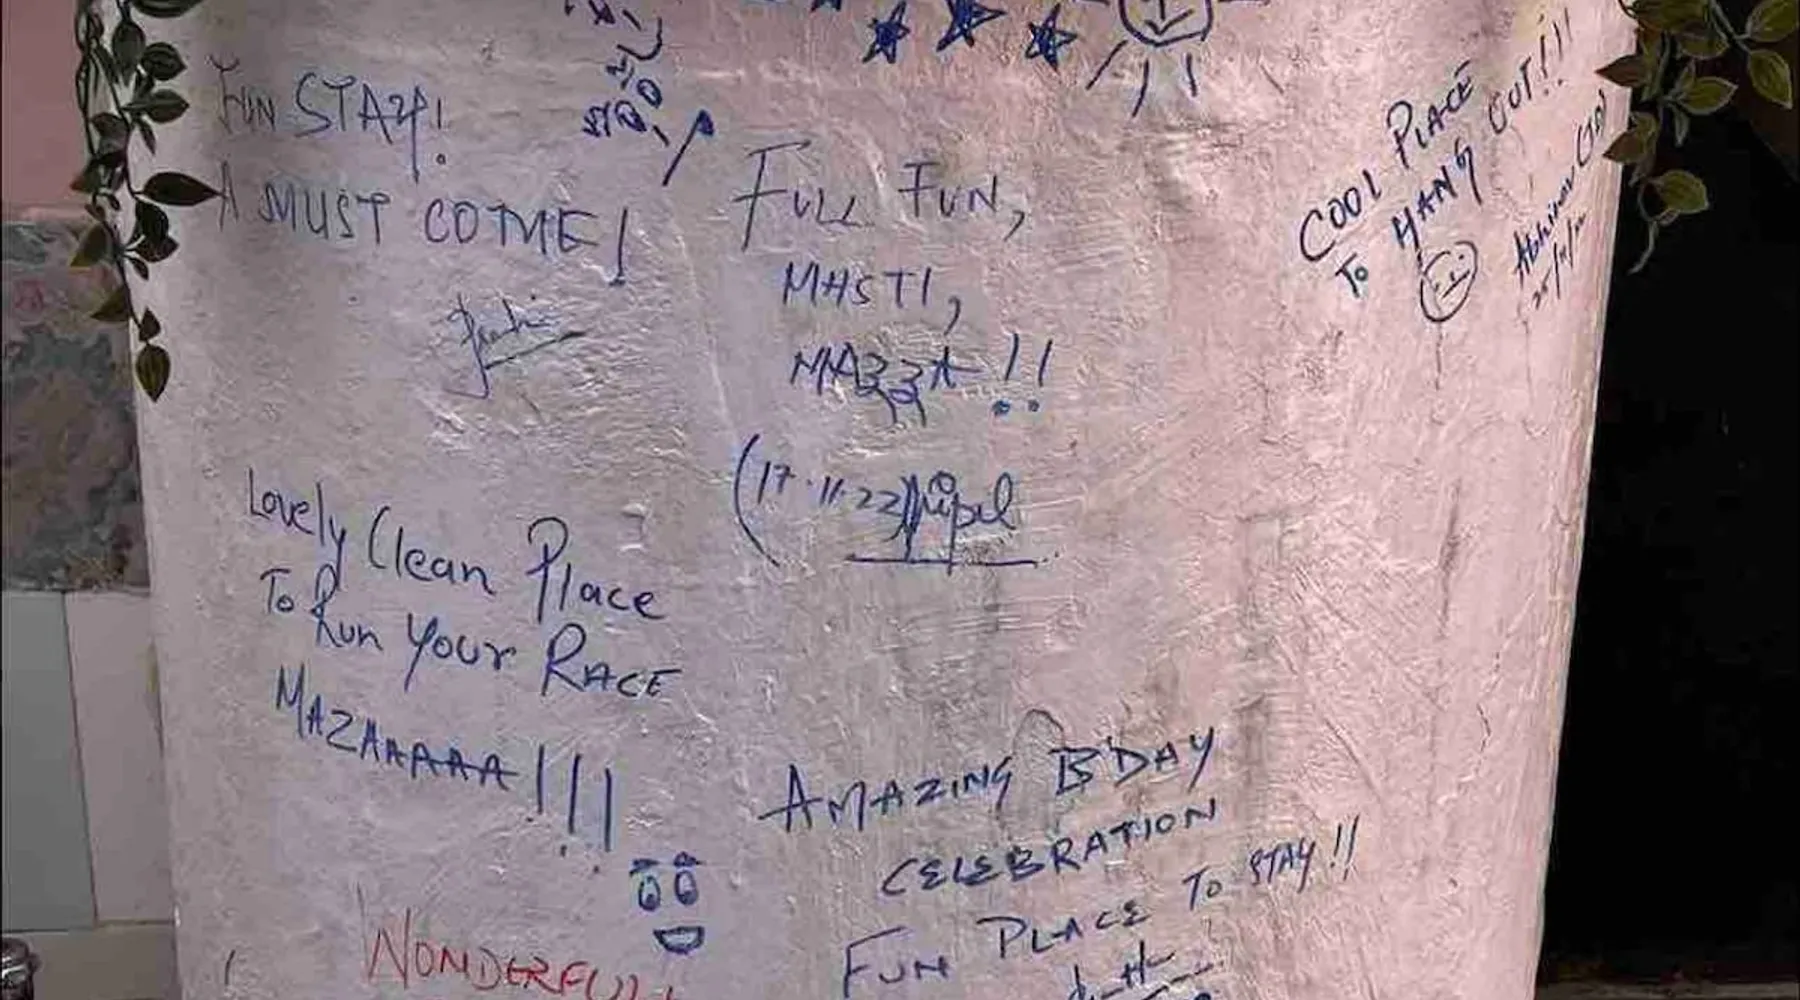 FUN STAY!
A MUST COME!
FULL FUN,
MASTI,
MAZZA !!
(17.11.22)
COOL PLACE
TO HANG OUT!!!
Lovely Clean Place
To Run Your RACE
MAZAAAAAA!!!
AMAZING B'DAY
CELEBRATION
FUN PLACE TO STAY!!
WONDERFUL